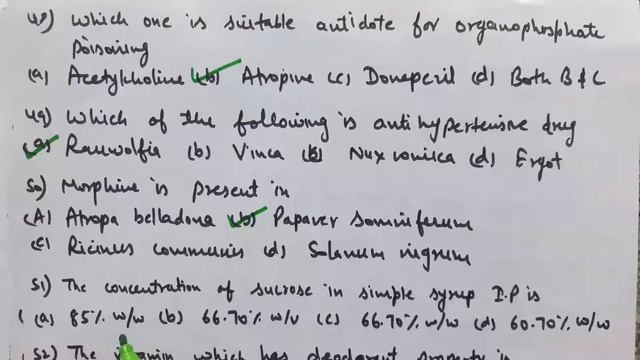 48) Which one is suitable antidote for organophosphate
poisoning
(a) Acetylcholine (b) Atropine (c) Donepezil (d) Both B & C
49) Which of the following is antihypertensive drug
(a) Rauwolfia (b) Vinca (c) Nux vomica (d) Ergot
50) Morphine is present in
(A) Atropa belladona (b) Papaver somniferum
(c) Ricinus communis (d) Solanum nigrum
51) The concentration of sucrose in simple syrup I.P is
(a) 85% w/w (b) 66.70% w/v (c) 66.70% w/w (d) 60.70% w/w
52) The vitamin which has deodorant property is